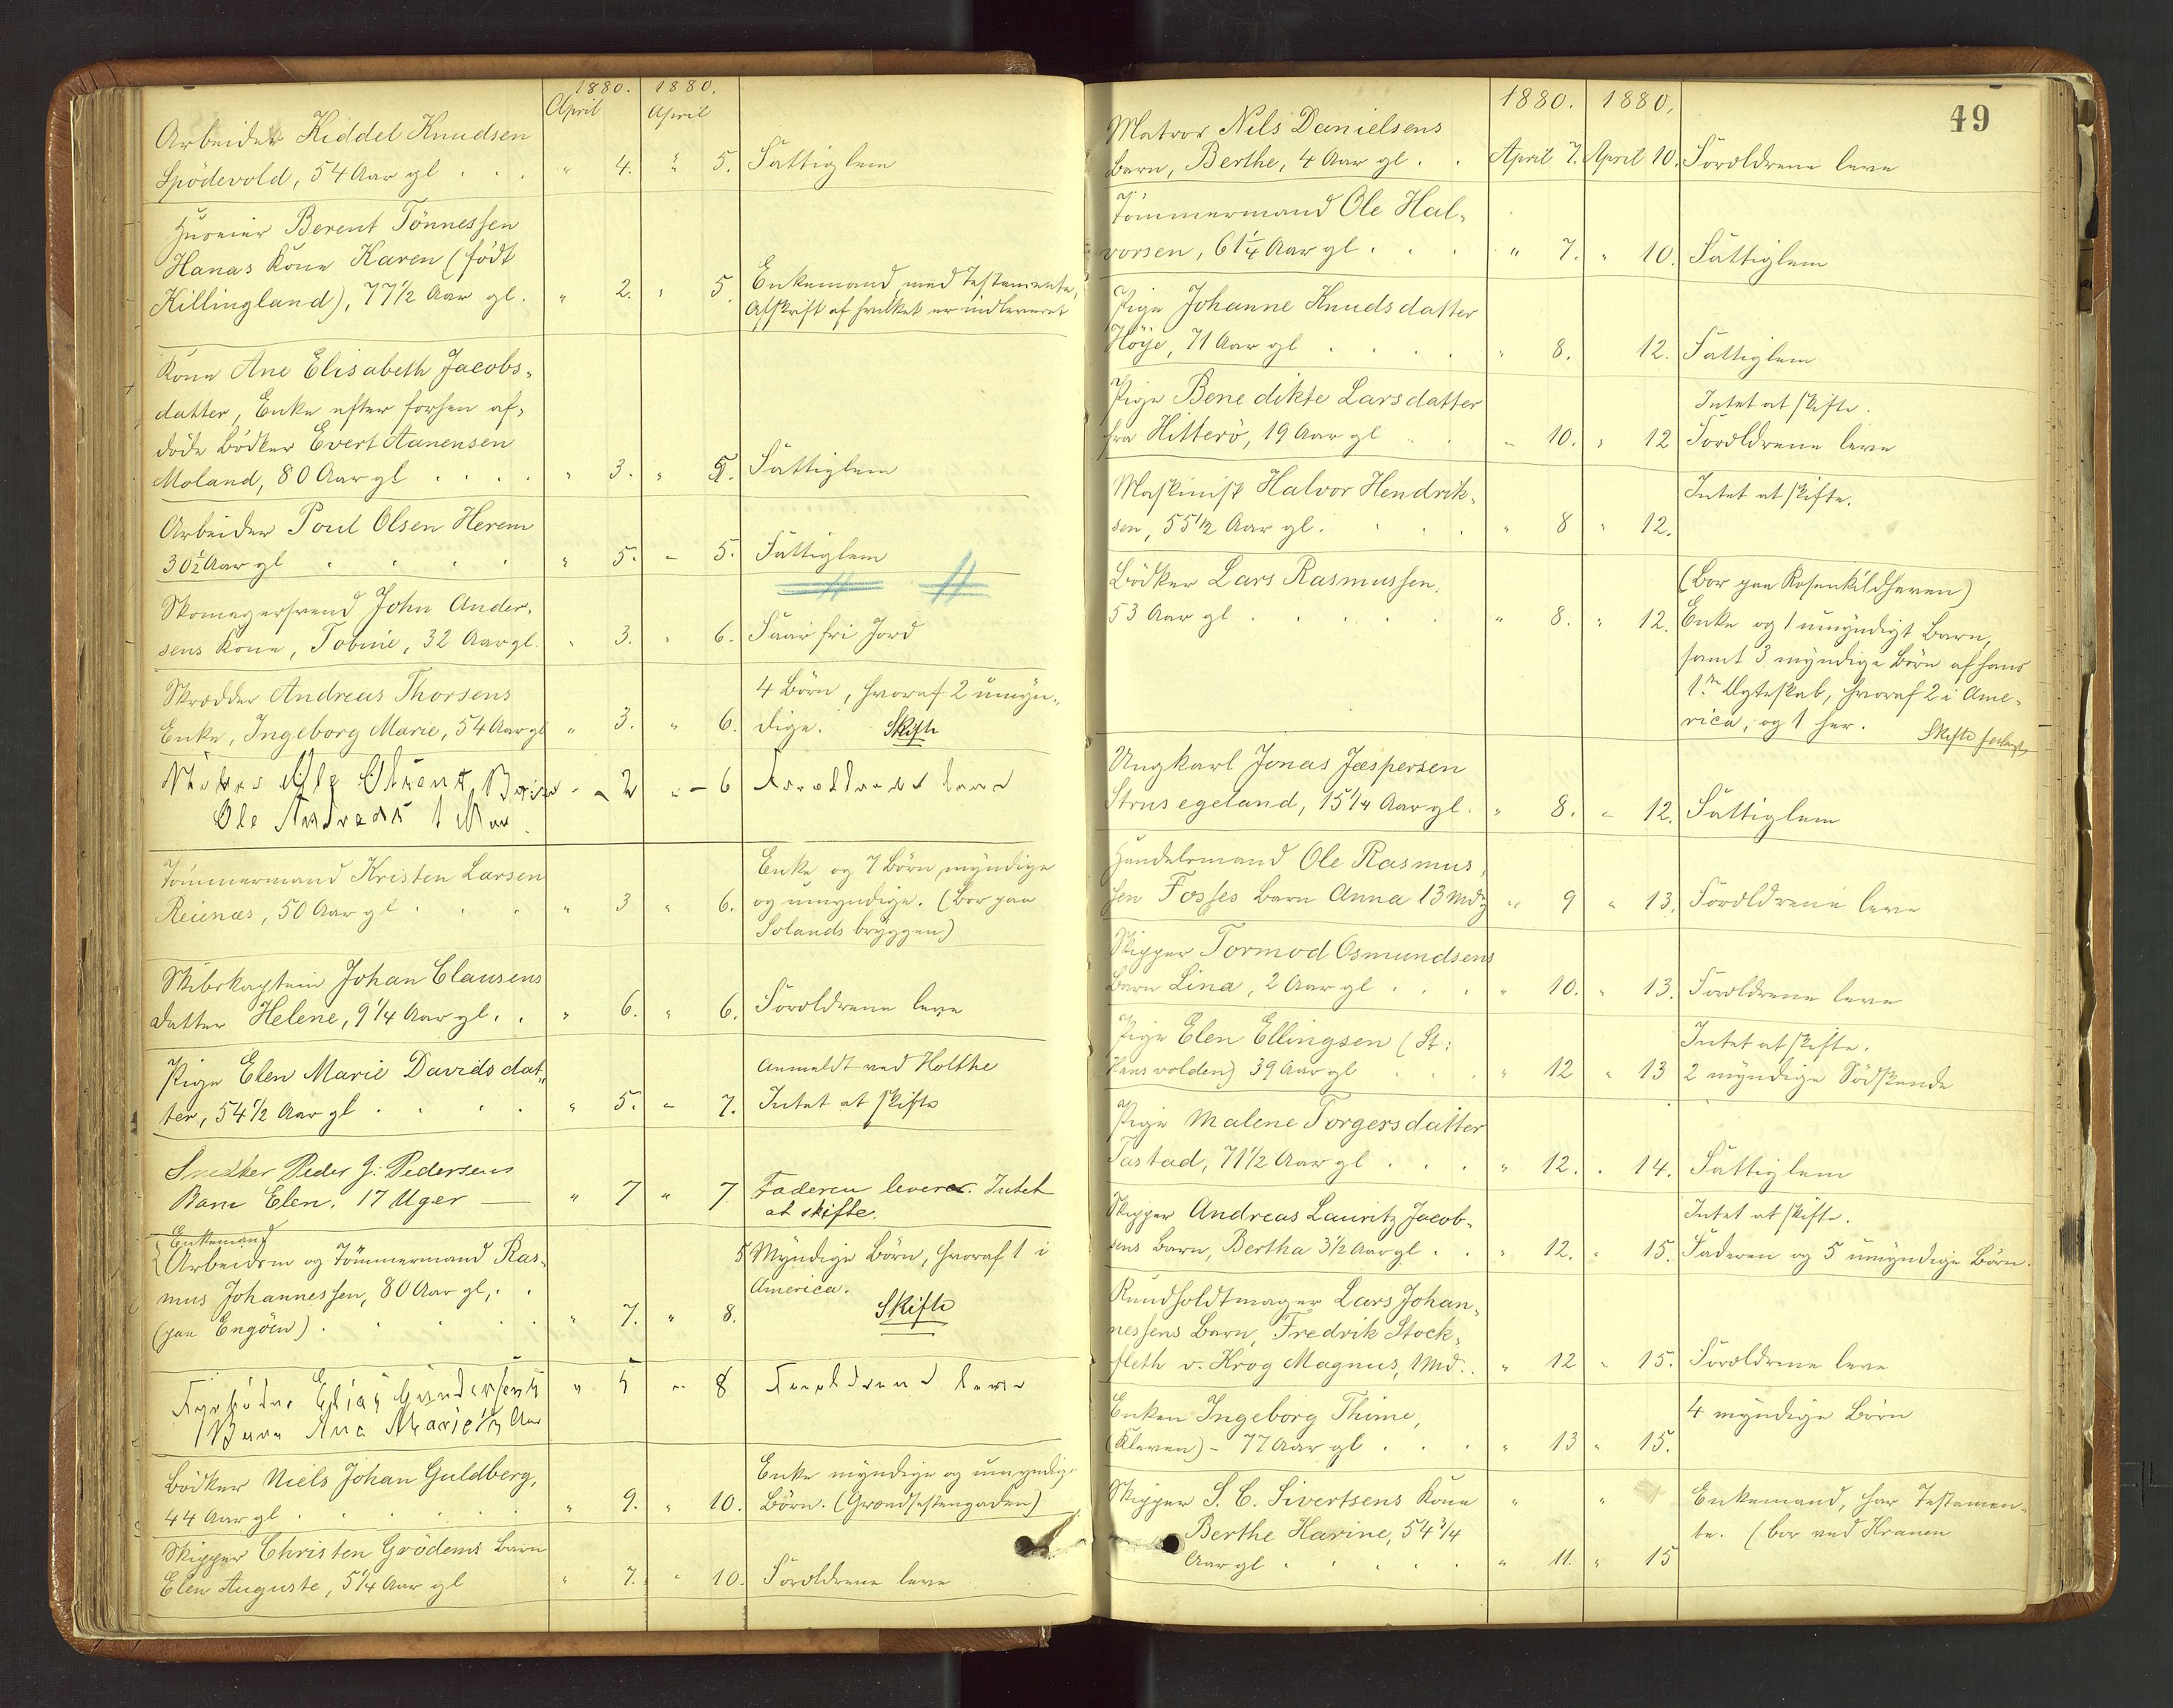 1880. 1880.
April April
Arbeider Kiddel Knudsen
Spödevold, 54 Aar gl . . . " 4. " 5. Fattiglem
Huseier Berent Tönnessen
Hanas Kone Karen (født
Killingland), 77 1/2 Aar gl. " 2. " 5. Enkemand, med Testamente,
Afskrift af hvilket er indleveret
Kone Ane Elisabeth Jacobs-
datter, Enke efter forhen af-
døde Bödker Evert Aanensen
Moland, 80 Aar gl . . . . " 3. " 5. Fattiglem
Arbeider Poul Olsen Herem
30 1/2 Aar gl . . . . " 5. " 5. Fattiglem
Skomagersvend John Ander-
sens Kone, Tobine, 32 Aar gl. " 3. " 6. Faar fri Jord
Skrædder Andreas Thorsens
Enke, Ingeborg Marie, 54 Aar gl " 3. " 6. 4 Börn, hvoraf 2 umyn-
dige. Skifte
Ole Olsens Barn " 2 " 6 Forældrene leve
Ole Andreas 1 Aar
Tömmermand Kristen Larsen
Reienæs, 50 Aar gl . . . " 3 " 6. Enke og 7 Börn, myndige
og umyndige. (Bor paa
Solands bryggen)
Skibskaptein Johan Clausens
datter Helene, 9 1/4 Aar gl. . " 6. " 6. Forældrene leve
Pige Elen Marie Davidsdat-
ter, 54 1/2 Aar gl . . . . " 5. " 7. Anmeldt ved Holthe
Intet at skifte
Snedker Peder J. Pedersens
Barn Elen. 17 Uger — " 7 " 7. Faderen lever. Intet
at skifte.
Enkemand
Arbeidsm og Tömmermand Ras-
mus Johannessen, 80 Aar gl, . .
(paa Engöen) . . . . " 7. " 8. 5 Myndige Börn, hvoraf 1 i
America.
Skifte
Fyrböder Elias Gundersens " 5 " 8 Forældrene leve
Barn Ane Marie 1/2 Aar
Bödker Niels Johan Guldberg,
44 Aar gl . . . . . " 9. " 10. Enke myndige og umyndige
Börn. (Grondsestengaden)
Skipper Christen Grödems Barn
Elen Auguste, 5 1/4 Aar gl " 7. " 10. Forældrene leve
49
1880. 1880.
Matros Nils Danielsens
Barn, Berthe, 4 Aar gl . . April 7. April 10. Forældrene leve
Tömmermand Ole Hal-
vorsen, 61 1/4 Aar gl . . . " 7. " 10. Fattiglem
Pige Johanne Knudsdatter
Höge, 71 Aar gl . . . . " 8. 12. Fattiglem
Pige Benedikte Larsdatter
fra Hitterö, 19 Aar gl . . " 10. " 12 Intet at skifte.
Forældrene leve
Maskinist Halvor Hendrik-
sen, 55 1/2 Aar gl. . . . " 8 " 12. Intet at skifte.
Bödker Lars Rasmussen,
53 Aar gl . . . . . " 8. " 12. (Bor paa Rosenkildhaven)
Enke og 1 umyndigt Barn,
samt 3 myndige Börn af hans
1ste Ægteskab, hvoraf 2 i Ame-
rica, og 1 her. Skifte
Ungkarl Jonas Jæspersen
Strusegeland, 15 1/4 Aar gl. " 8. " 12. Fattiglem
Handelsmand Ole Rasmus-
sen Fosses Barn Anna 13 Mdr " 9 " 13. Forældrene leve
Skipper Tormod Osmundsens
Barn Lina, 2 Aar gl . . . " 10. " 13. Forældrene leve
Pige Elen Ellingsen (St:
Hansvolden) 39 Aar gl . . . " 12 " 13 Intet at skifte.
2 myndige Södskende
Pige Malene Torgersdatter
Tastad, 71 1/2 Aar gl . . . " 12. " 14. Fattiglem
Skipper Andreas Lauritz Jacob-
sens Barn, Bertha 3 1/2 Aar gl . . " 12. " 15. Intet at skifte.
Faderen og 5 umyndige Börn.
Rundholdtmager Lars Johan-
nessens Barn, Fredrik Stock-
fleth v. Krog Magnus, 1 Md.. " 12 " 15. Forældrene leve
Enken Ingeborg Thime,
(Kleven) - 77 Aar gl . . . " 13 " 15. 4 myndige Börn
Skipper S. C. Sivertsens Kone " "
Berthe Karine, 54 3/4
Aar gl . . . . . " 11. " 15 Enkemand, har Testamen-
te. (bor ved Kranen